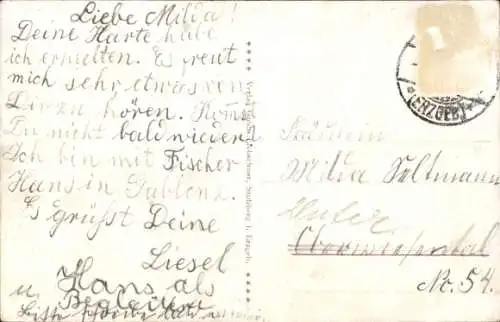 Liebe Milda!
Deine Karte habe
ich erhielten. Es freut
mich sehr etwas von
Dir zu hören. Kommt
Du nicht bald wieder?
Ich bin mit Fischer
Hans in Gablenz.
Es grüßt Deine
Liesel
u. Hans als
Begleiter
Bitte schreibe bald
(ERZGEB.)
Fräulein
Milda Seltmann
Unter
Oberwiesenthal
Nr. 54.